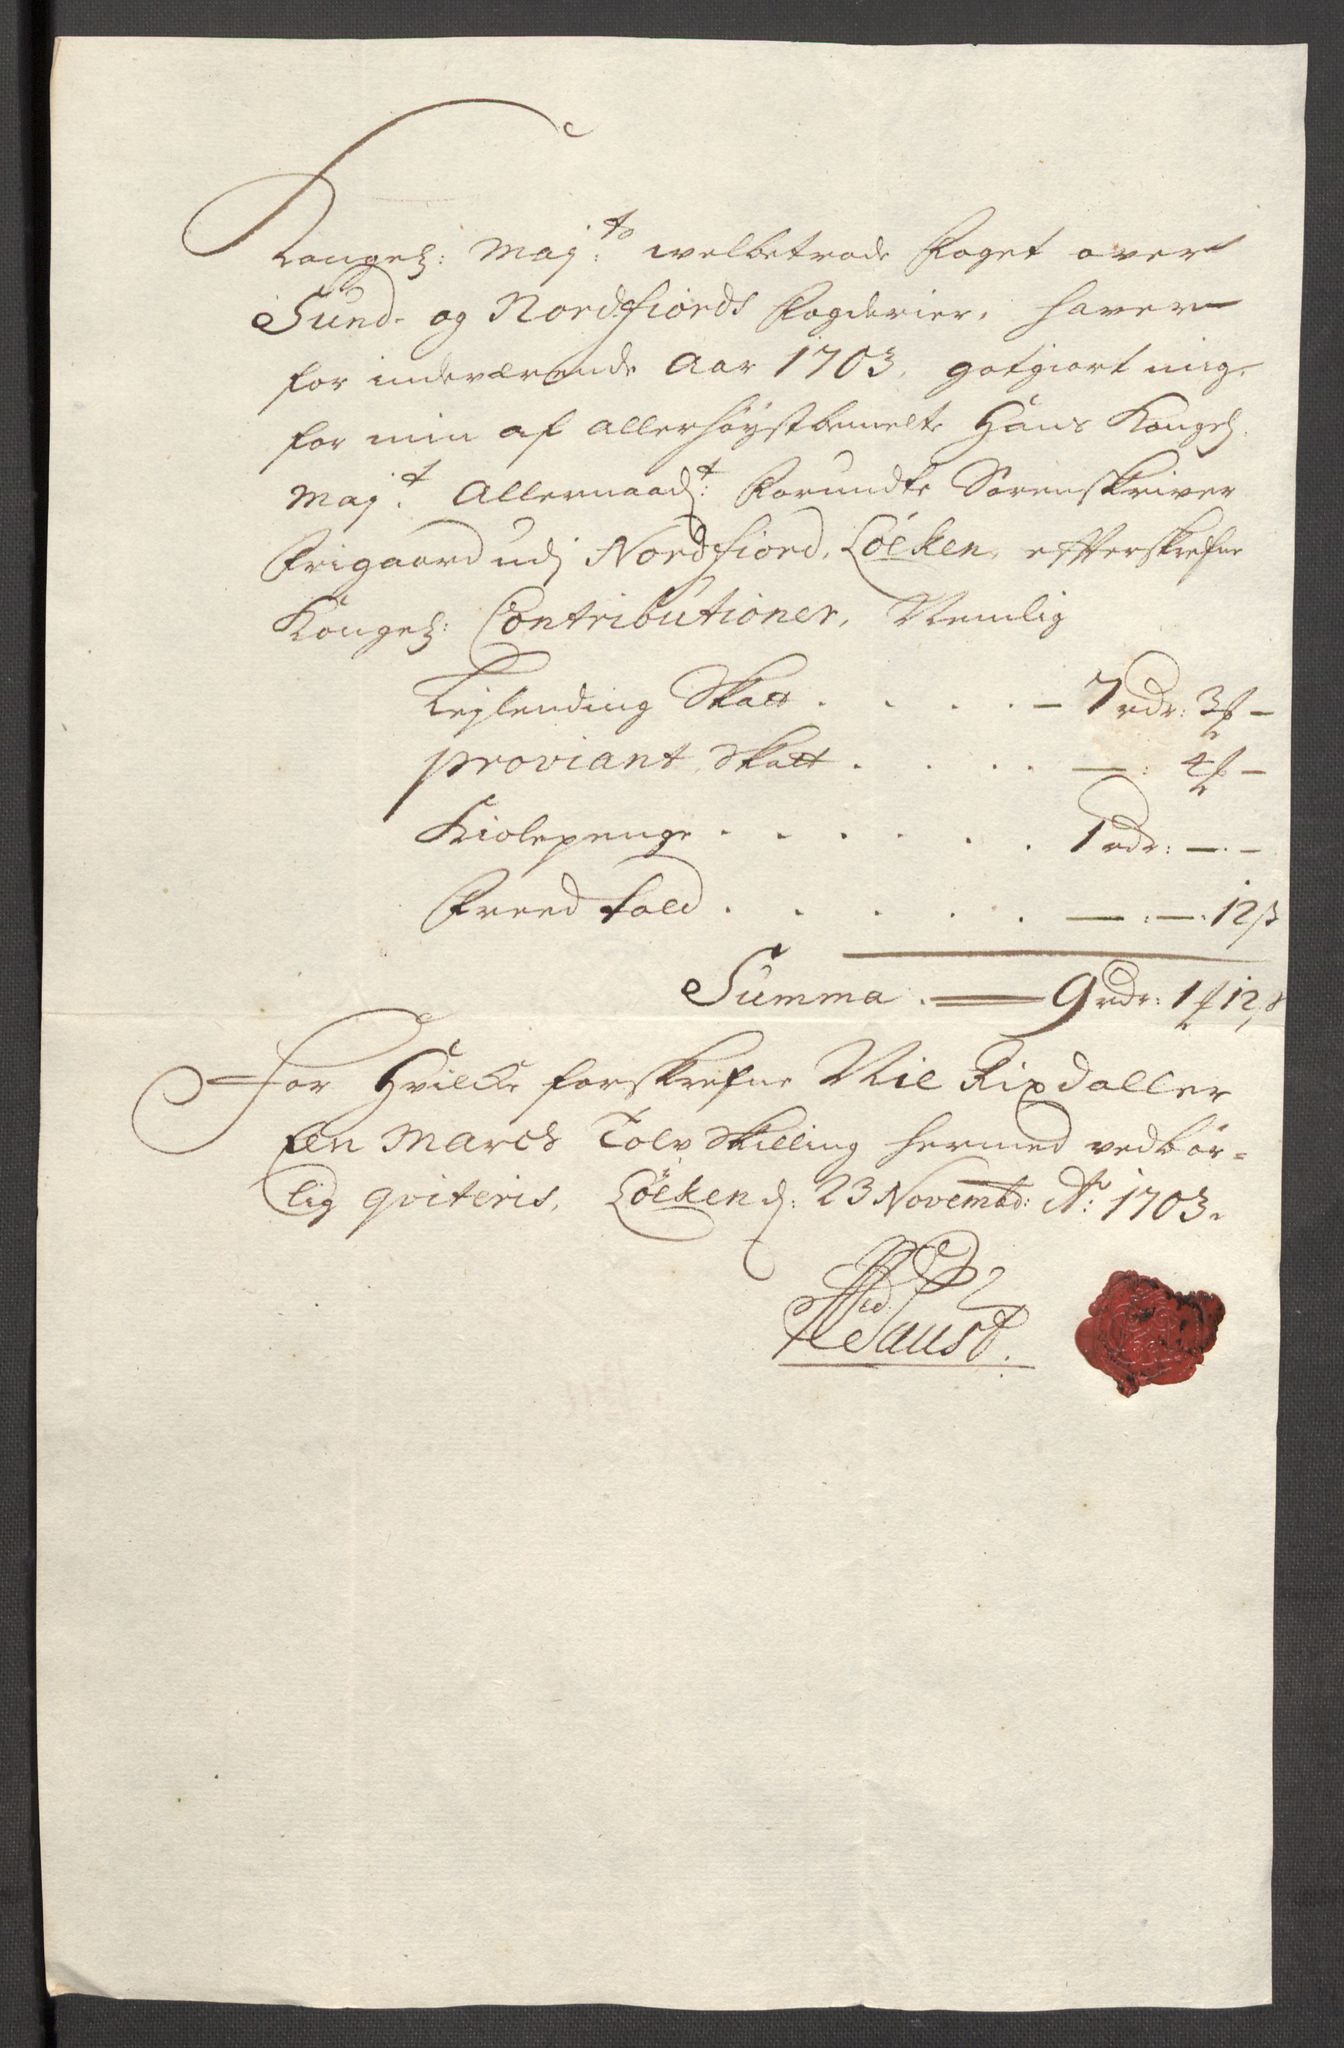 Kongel: Maj:ts welbetrode Foget over
Sund- og Nordfiords Fogderier, hafver
for indeværende Aar 1703, gotgiort mig,
for min af allerhöystbemelte Hans Kongel.
Maj:t Allernaad:t Forundte Sorenskriver
Frigaard udj Nordfiord, Löeken, effterskrefne
Kongel: Contributioner, Nemlig
Leylending Skatt . . . . — 7 rdr: 3 ₰ —
proviant Skatt . . . . — : 4 ₰ —
Kiolepenge . . . . . . 1 rdr: — . —
Freed told . . . . . — : — . 12 β
Summa . — 9 rdr: 1 ₰ 12 β
For Hvilcke forskrefne Nie Rixdaller
Een Marck Tolv Skilling hermed vedbör=
lig qviteris, Löeken d: 23 Novembr: Ao: 1703.
Faust.